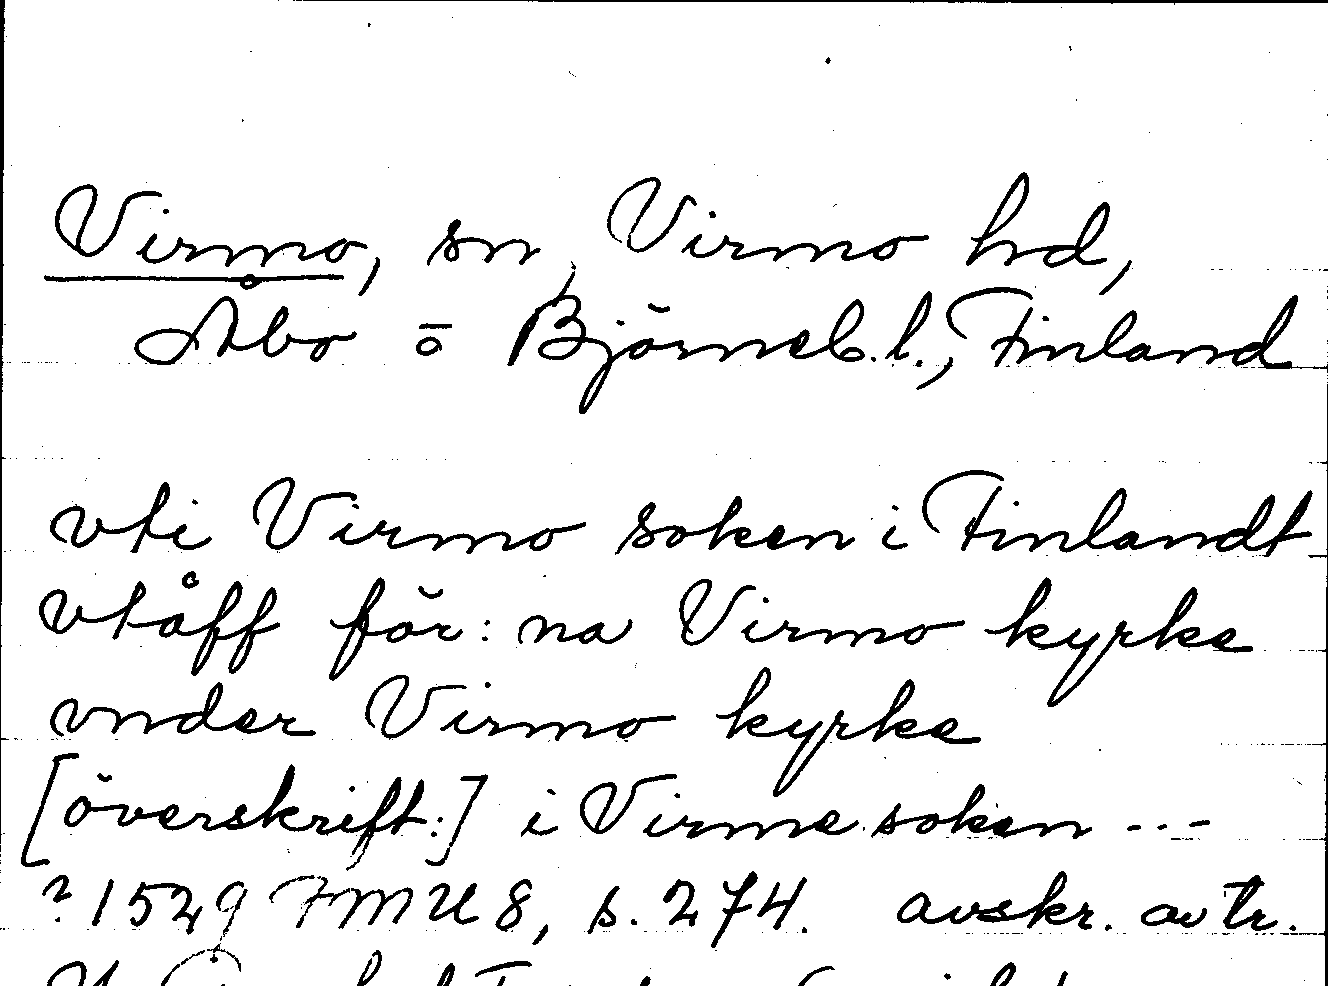 Virmo, sn, Virmo hd,
Åbo o Björneb.l., Finland
vti Virmo soken i Finlandt
vtåff för: na Virmo kyrke
vnder Virmo kyrke
[överskrift:] i Virme soken ---
? 1529 FMU 8, s. 274. avskr. av tr.